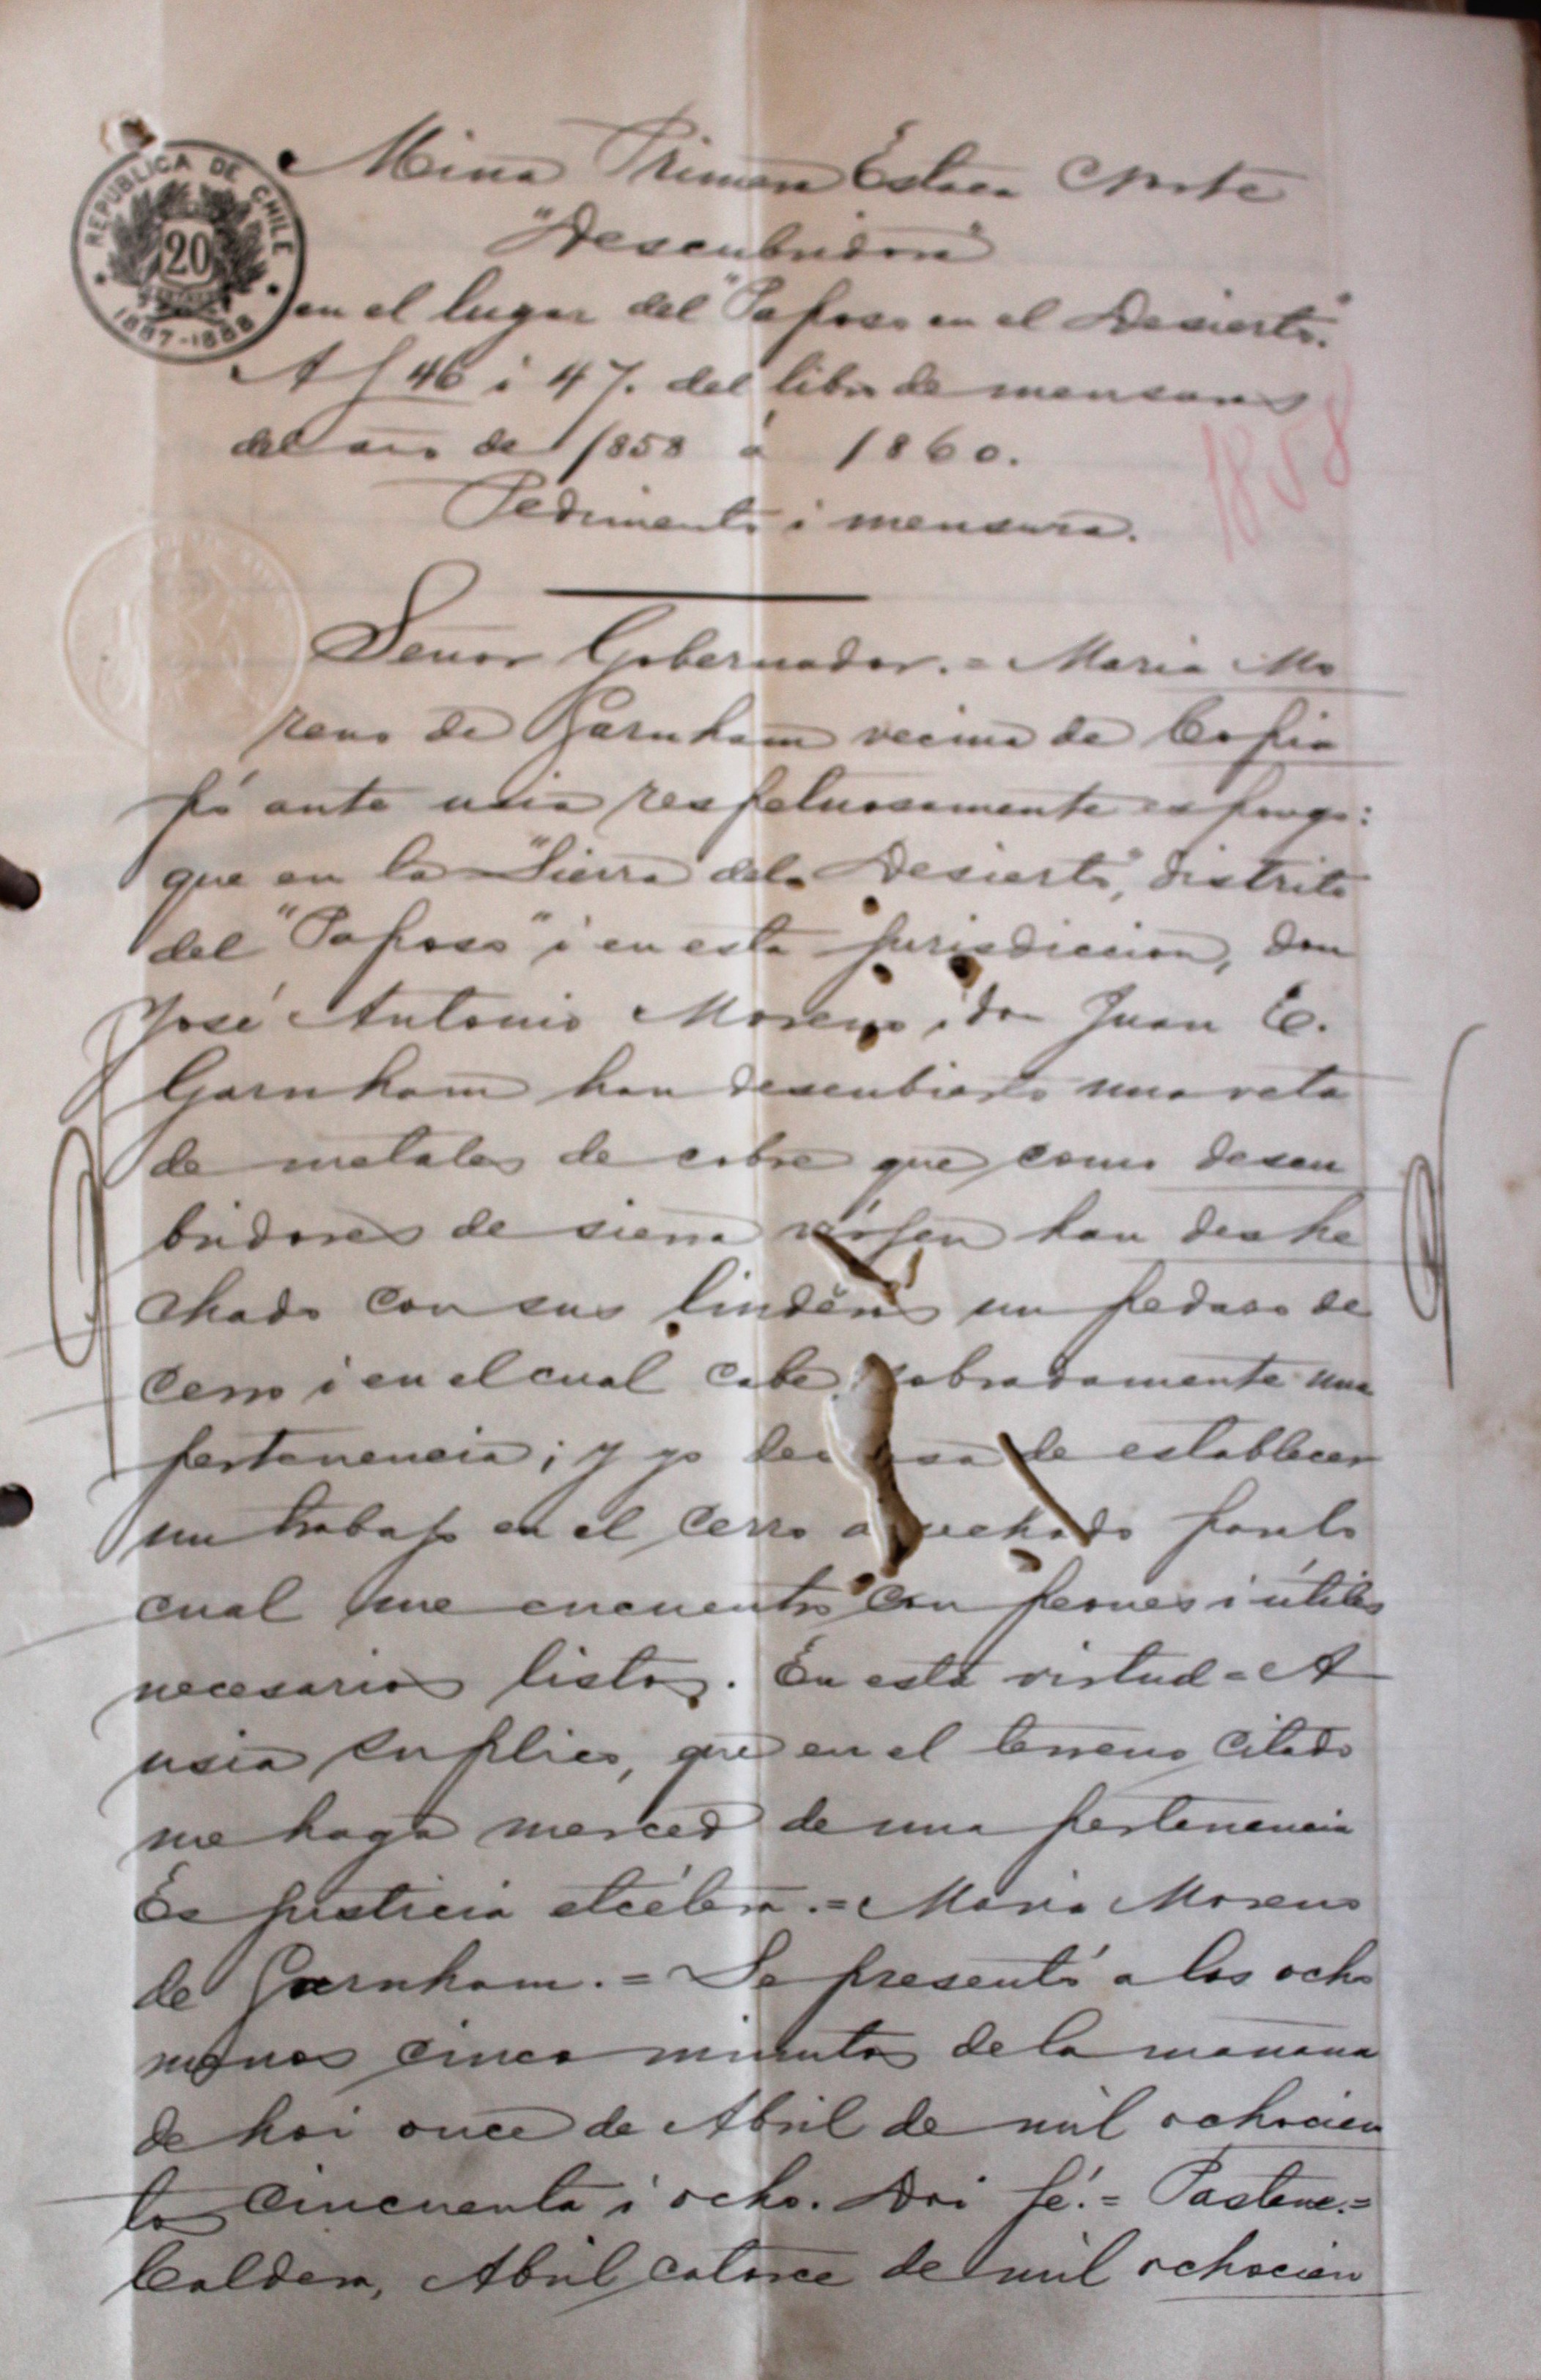 REPUBLICA DE CHILE
20
1887-1888
Mina Primera Estaca Norte
"Descubridora"
en el lugar del "Paposo en el Desierto."
A f 46 i 47. del libro de mensuras
del año de 1858 á 1860.
1858
Pedimento i mensura.
Señor Gobernador. = Maria Mo
reno de Garnham vecina de Copia
pó ante usia respetuosamente espongo:
que en la "Sierra del Desierto", distrito
del "Paposo" i en esta jurisdiccion, don
José Antonio Moreno i don Juan E.
Garnham han descubierto una veta
de metales de cobre que como descu
bridores de sierra vírjen han deshe
chado con sus linderos un pedaso de
cerro i en el cual cabe sobradamente una
pertenencia; y yo de establecer
un trabajo en el cerro para lo
cual me encuentro con peones i útiles
necesarios listos. En esta virtud = A
usia suplico, que en el terreno citado
me haga merced de una pertenencia
Es justicia etcétera. = Maria Moreno
de Garnham. = Se presentó a las ocho
menos cinco minutos de la mañana
de hoi once de Abril de mil ochocien
tos cincuenta i ocho. Doi fé. = Pastene. =
Caldera, Abril catorce de mil ochocien